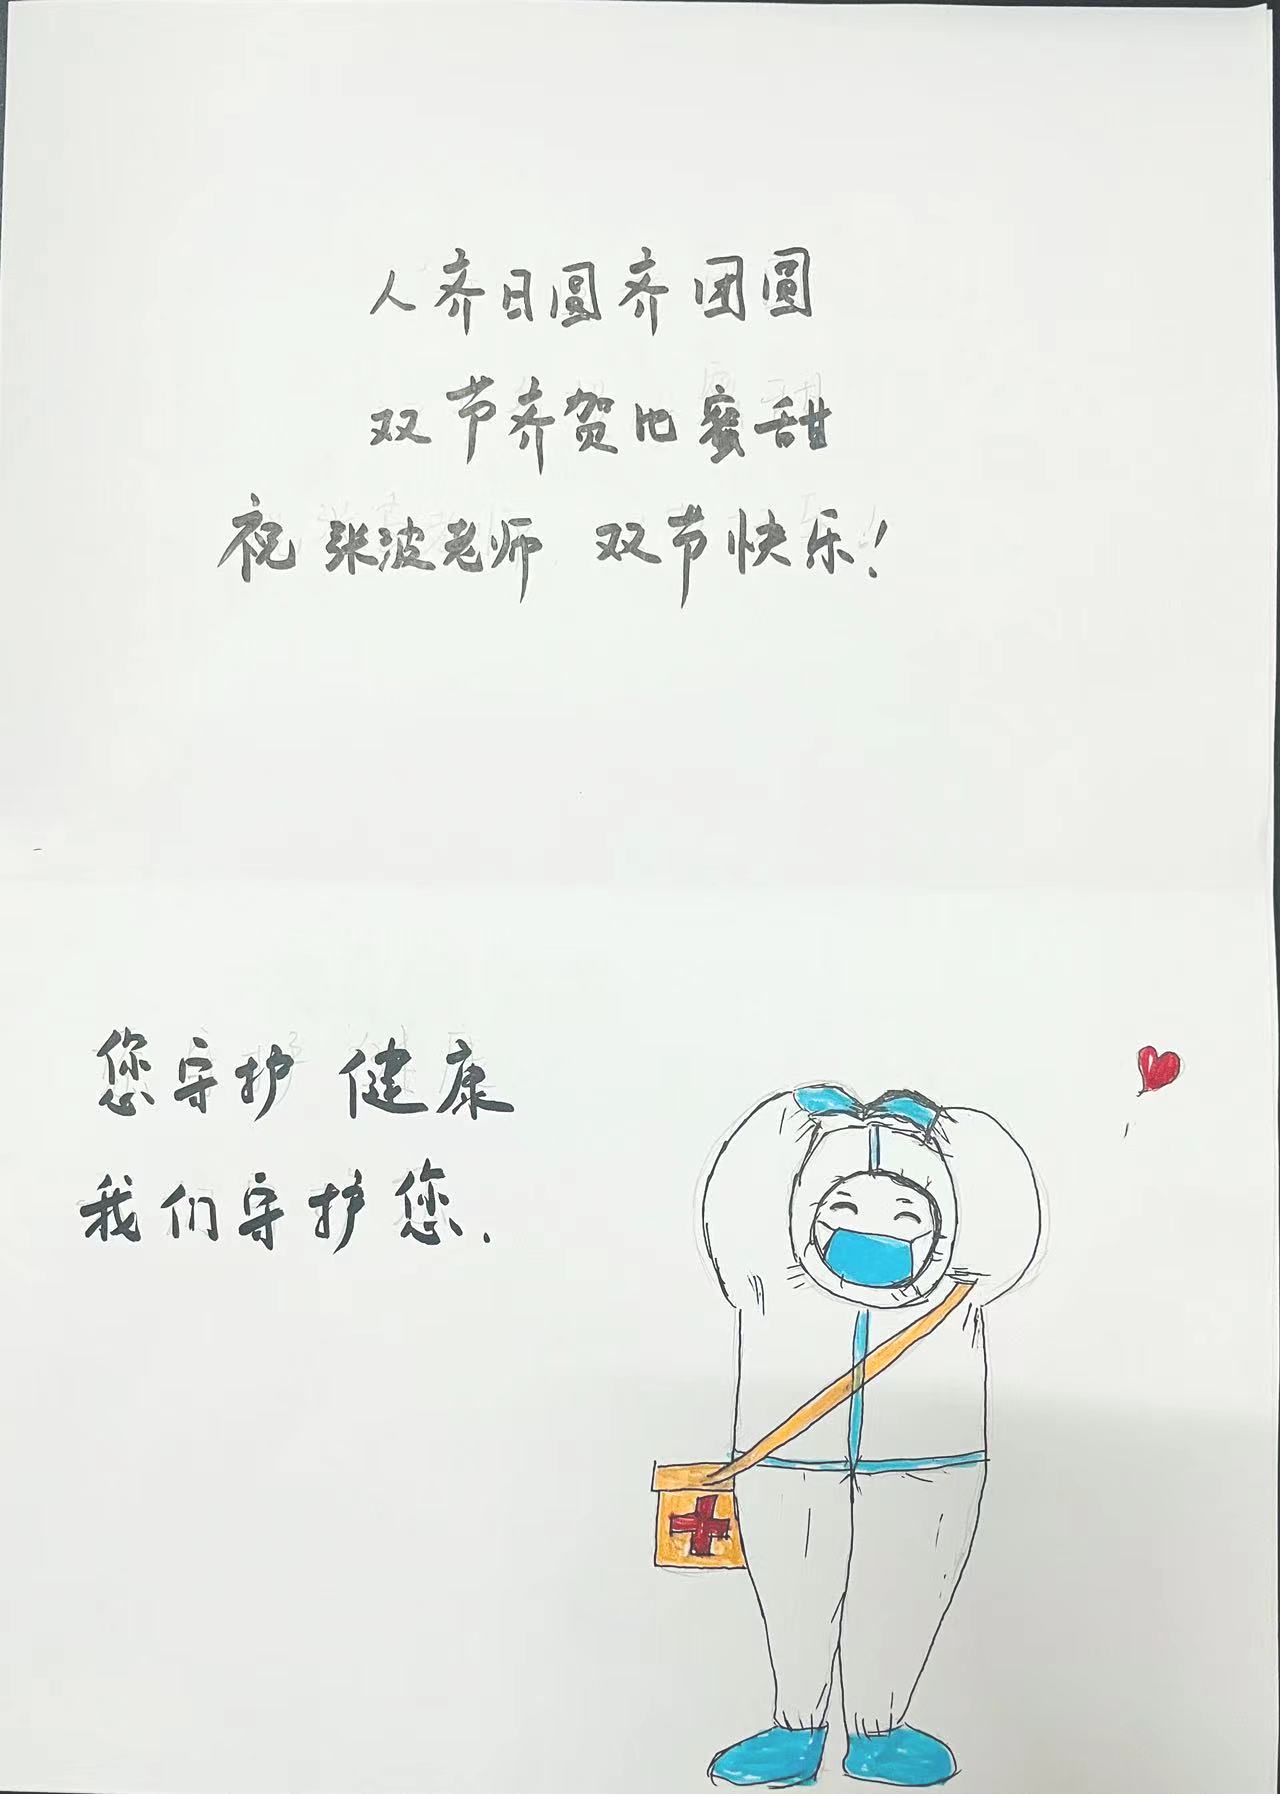 人齐日圆齐团圆
双节齐贺比蜜甜
祝张波老师 双节快乐!
您守护 健康
我们守护您.